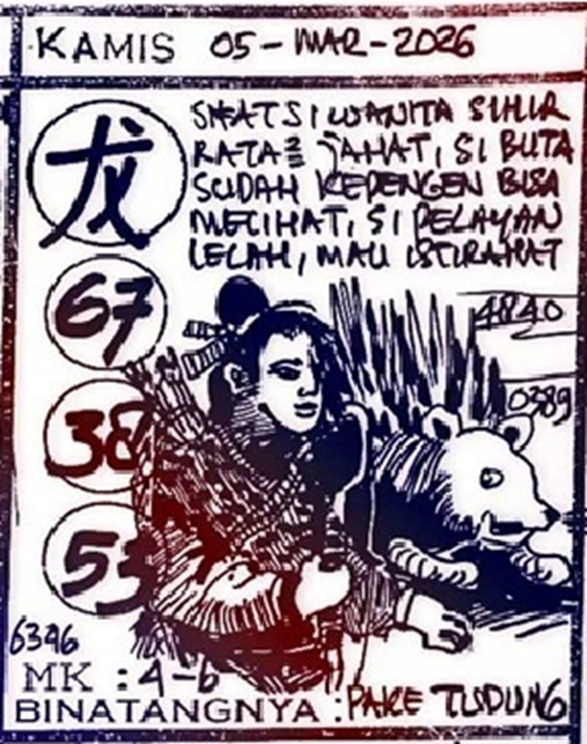 KAMIS 05-MAR-2026
龙
SAAT SI WANITA SIHIR
RATA² JAHAT, SI BUTA
SUDAH KEPENGEN BISA
MELIHAT, SI PELAYAN
LELAH, MAU ISTIRAHAT
67
4840
38
0389
53
6396
MK : 4-6
BINATANGNYA : PAKE TUDUNG